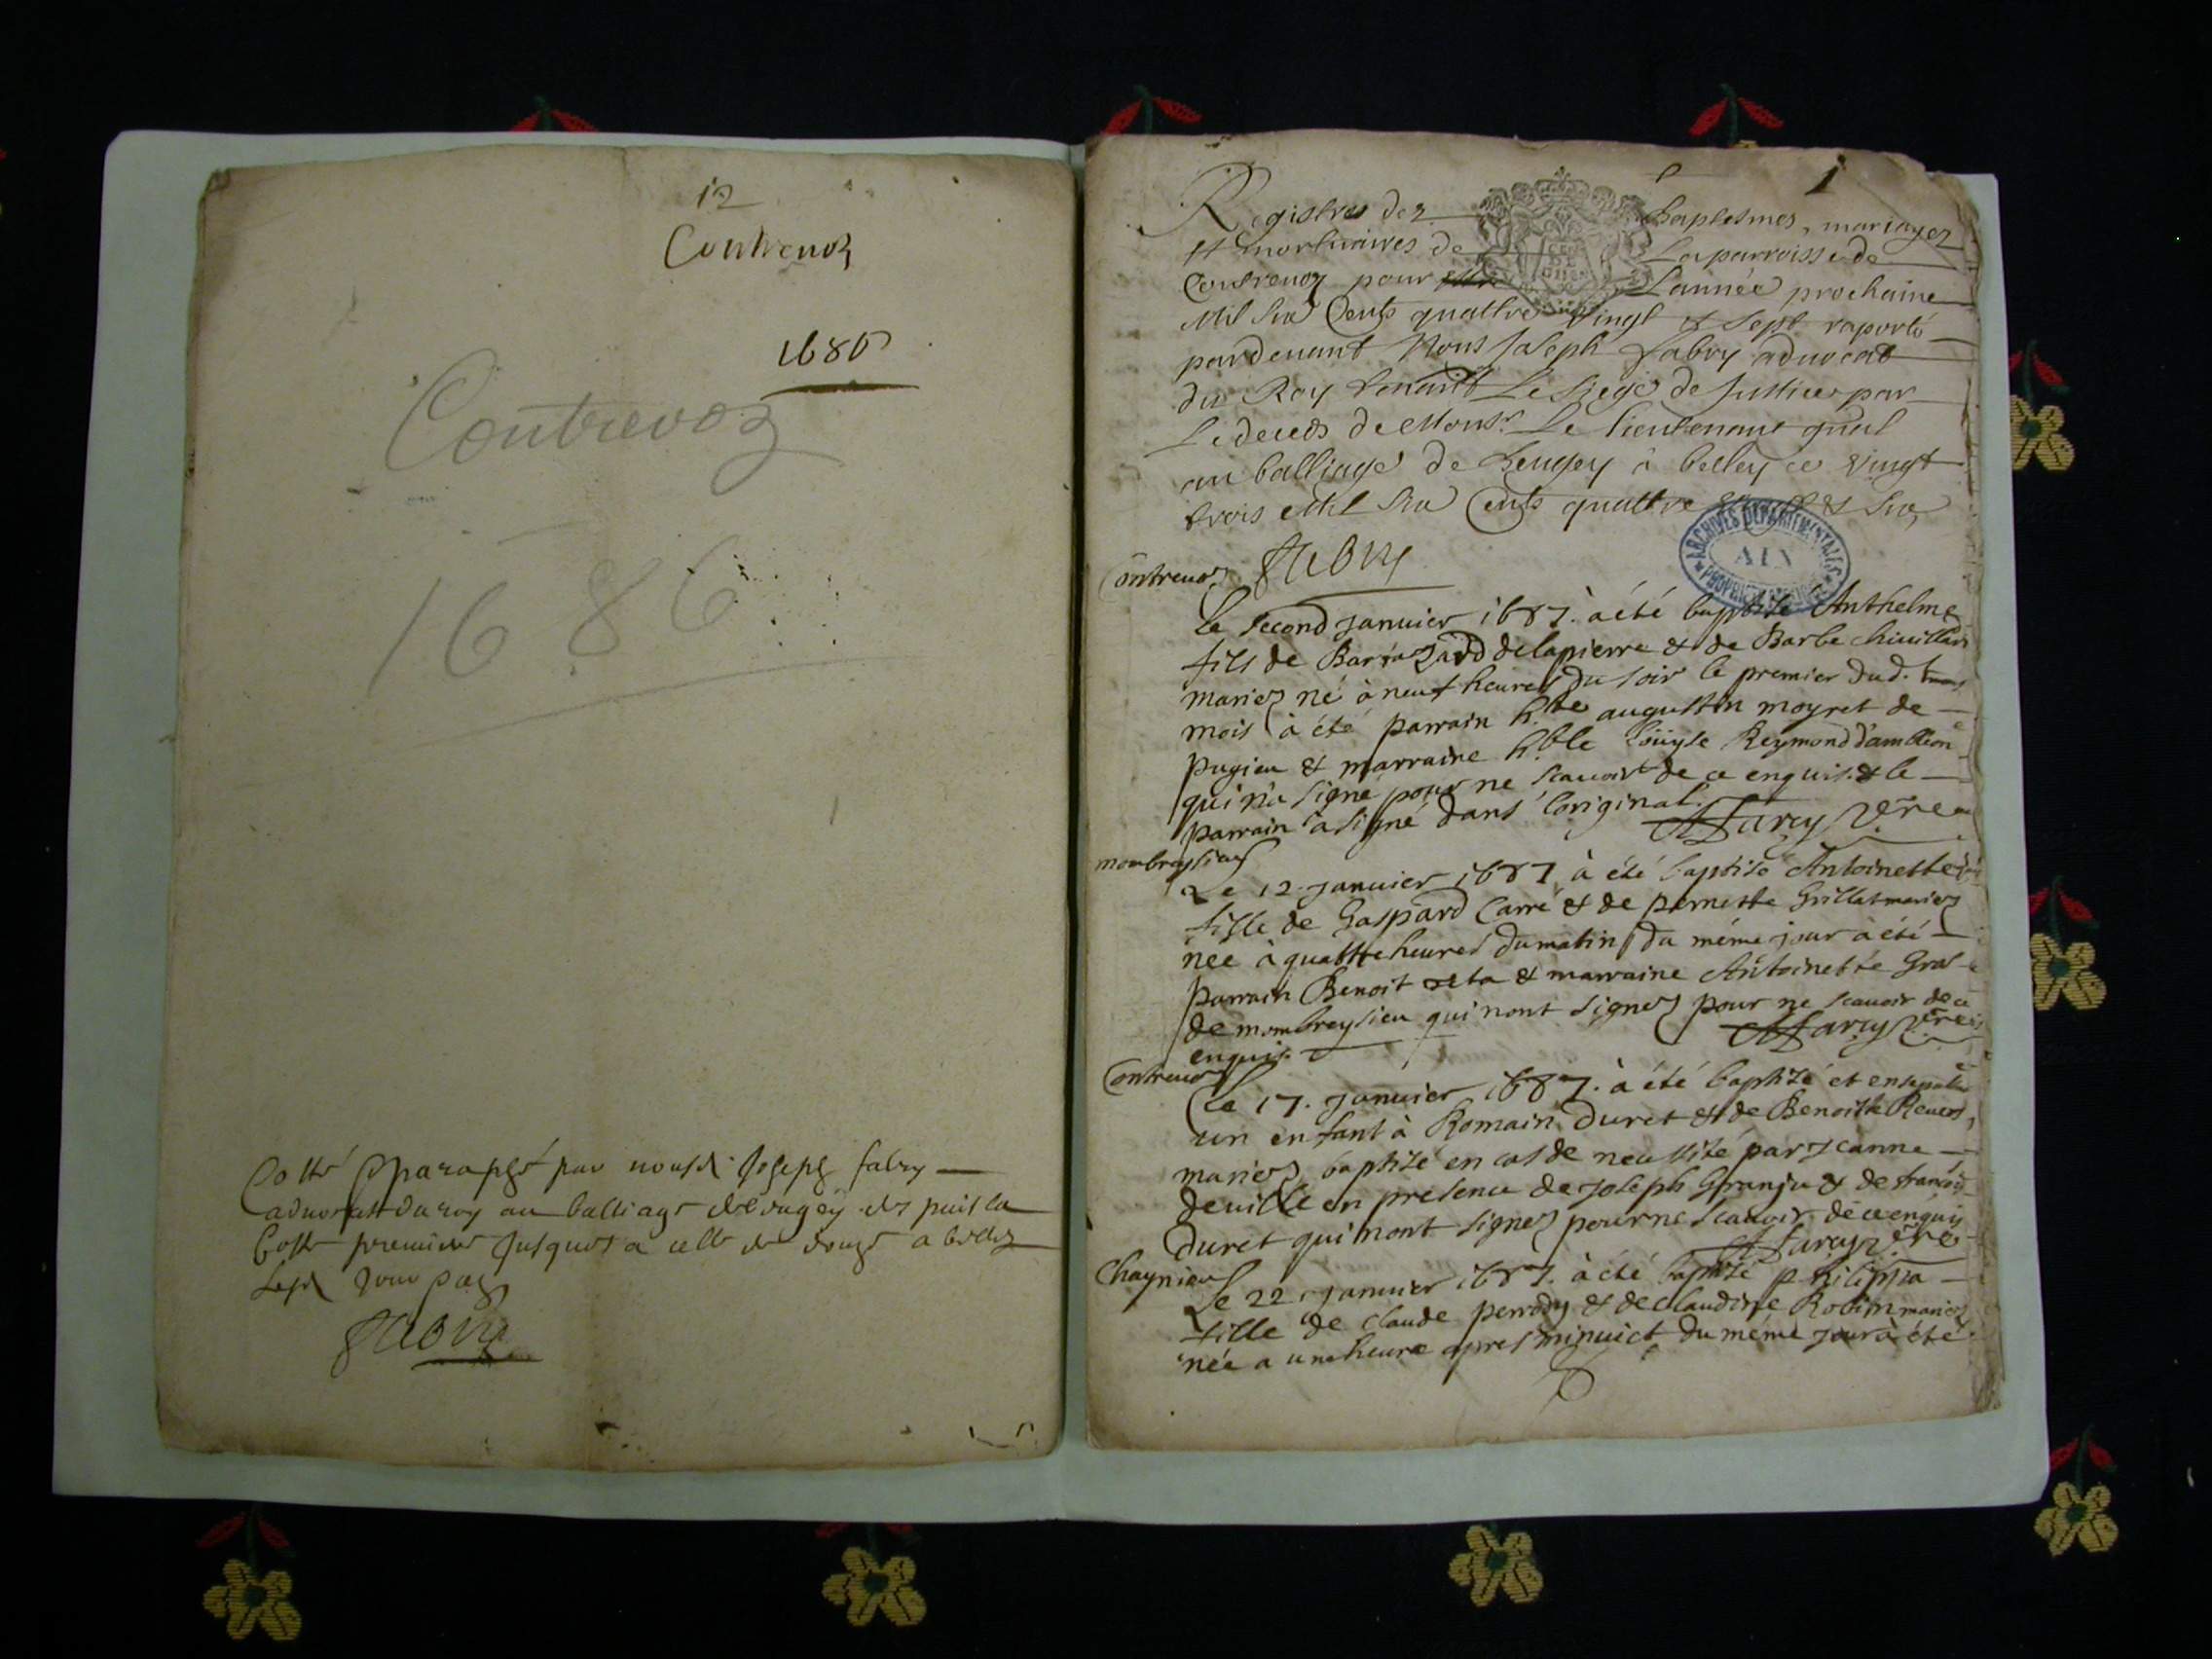 12
Contrevoz
1686
Contrevoz
1686
Cotté paraphé par nous Joseph fabry
advocat du roy au balliage de bugey des puis la
Cotte premiere Jusques a celle de douze a belley
fabry
1
Registres des baptesmes, mariages
et mortuaires de la parroisse de
Contrevoz pour l'année prochaine
Mil Six Cents quattre vingt & sept raporté
pardevant Nous Joseph fabry advocat
du Roy tenant Le siege de Justice par
Le deceds de Mons.r Le lieutenant gnal
au balliage de beugey à belley ce vingt
trois Mil Six Cents quattre & Six
fabry
ARCHIVES DEPARTEMENTALES
AIN
Contrevoz
Le second janvier 1687. à été baptisé Anthelme
fils de delapierre & de Barbe
mariez né à neuf heures du soir le premier dud.
mois à été parrain h.ble augustin moyret de
pugieu & marraine h.ble Loüyse Reymond d'ambleon
qui n'a signé pour ne scavoir de ce enquis. & le
parrain a signé dans l'original.
mombreysieu
Le 12. janvier 1687 à été baptisé Antoinette
fille de Gaspard Carré & de pernette Grillat mariez
née à quattre heures du matin du méme jour à été
parrain Benoit & marraine Antoinette
de mombreysieu qui nont signez pour ne scavoir de ce
enquis.
Contrevoz
Le 17. janvier 1687. à été baptizé et
un enfant à Romain Duret & de Benoitte
mariez, baptizé en cas de necessité par jeanne
deville en presence de joseph Granju & de francois
Duret qui nont signez pour ne scavoir de ce enquis
Chaynieu
Le 22. janvier 1687. à été baptizé philippa
fille de claude perrody & de claudine Robin mariez
née a une heure apres minuict du méme jour à été